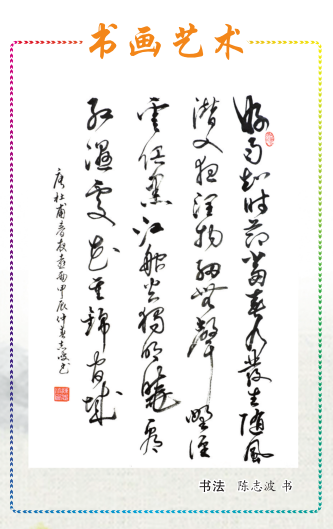 书画艺术
好雨知时节當春乃發生随風
潜入夜润物细無聲野径
雲俱黑江船火獨明曉看
红湿處花重錦官城
唐杜甫春夜喜雨甲辰仲春志波书
书法 陈志波 书